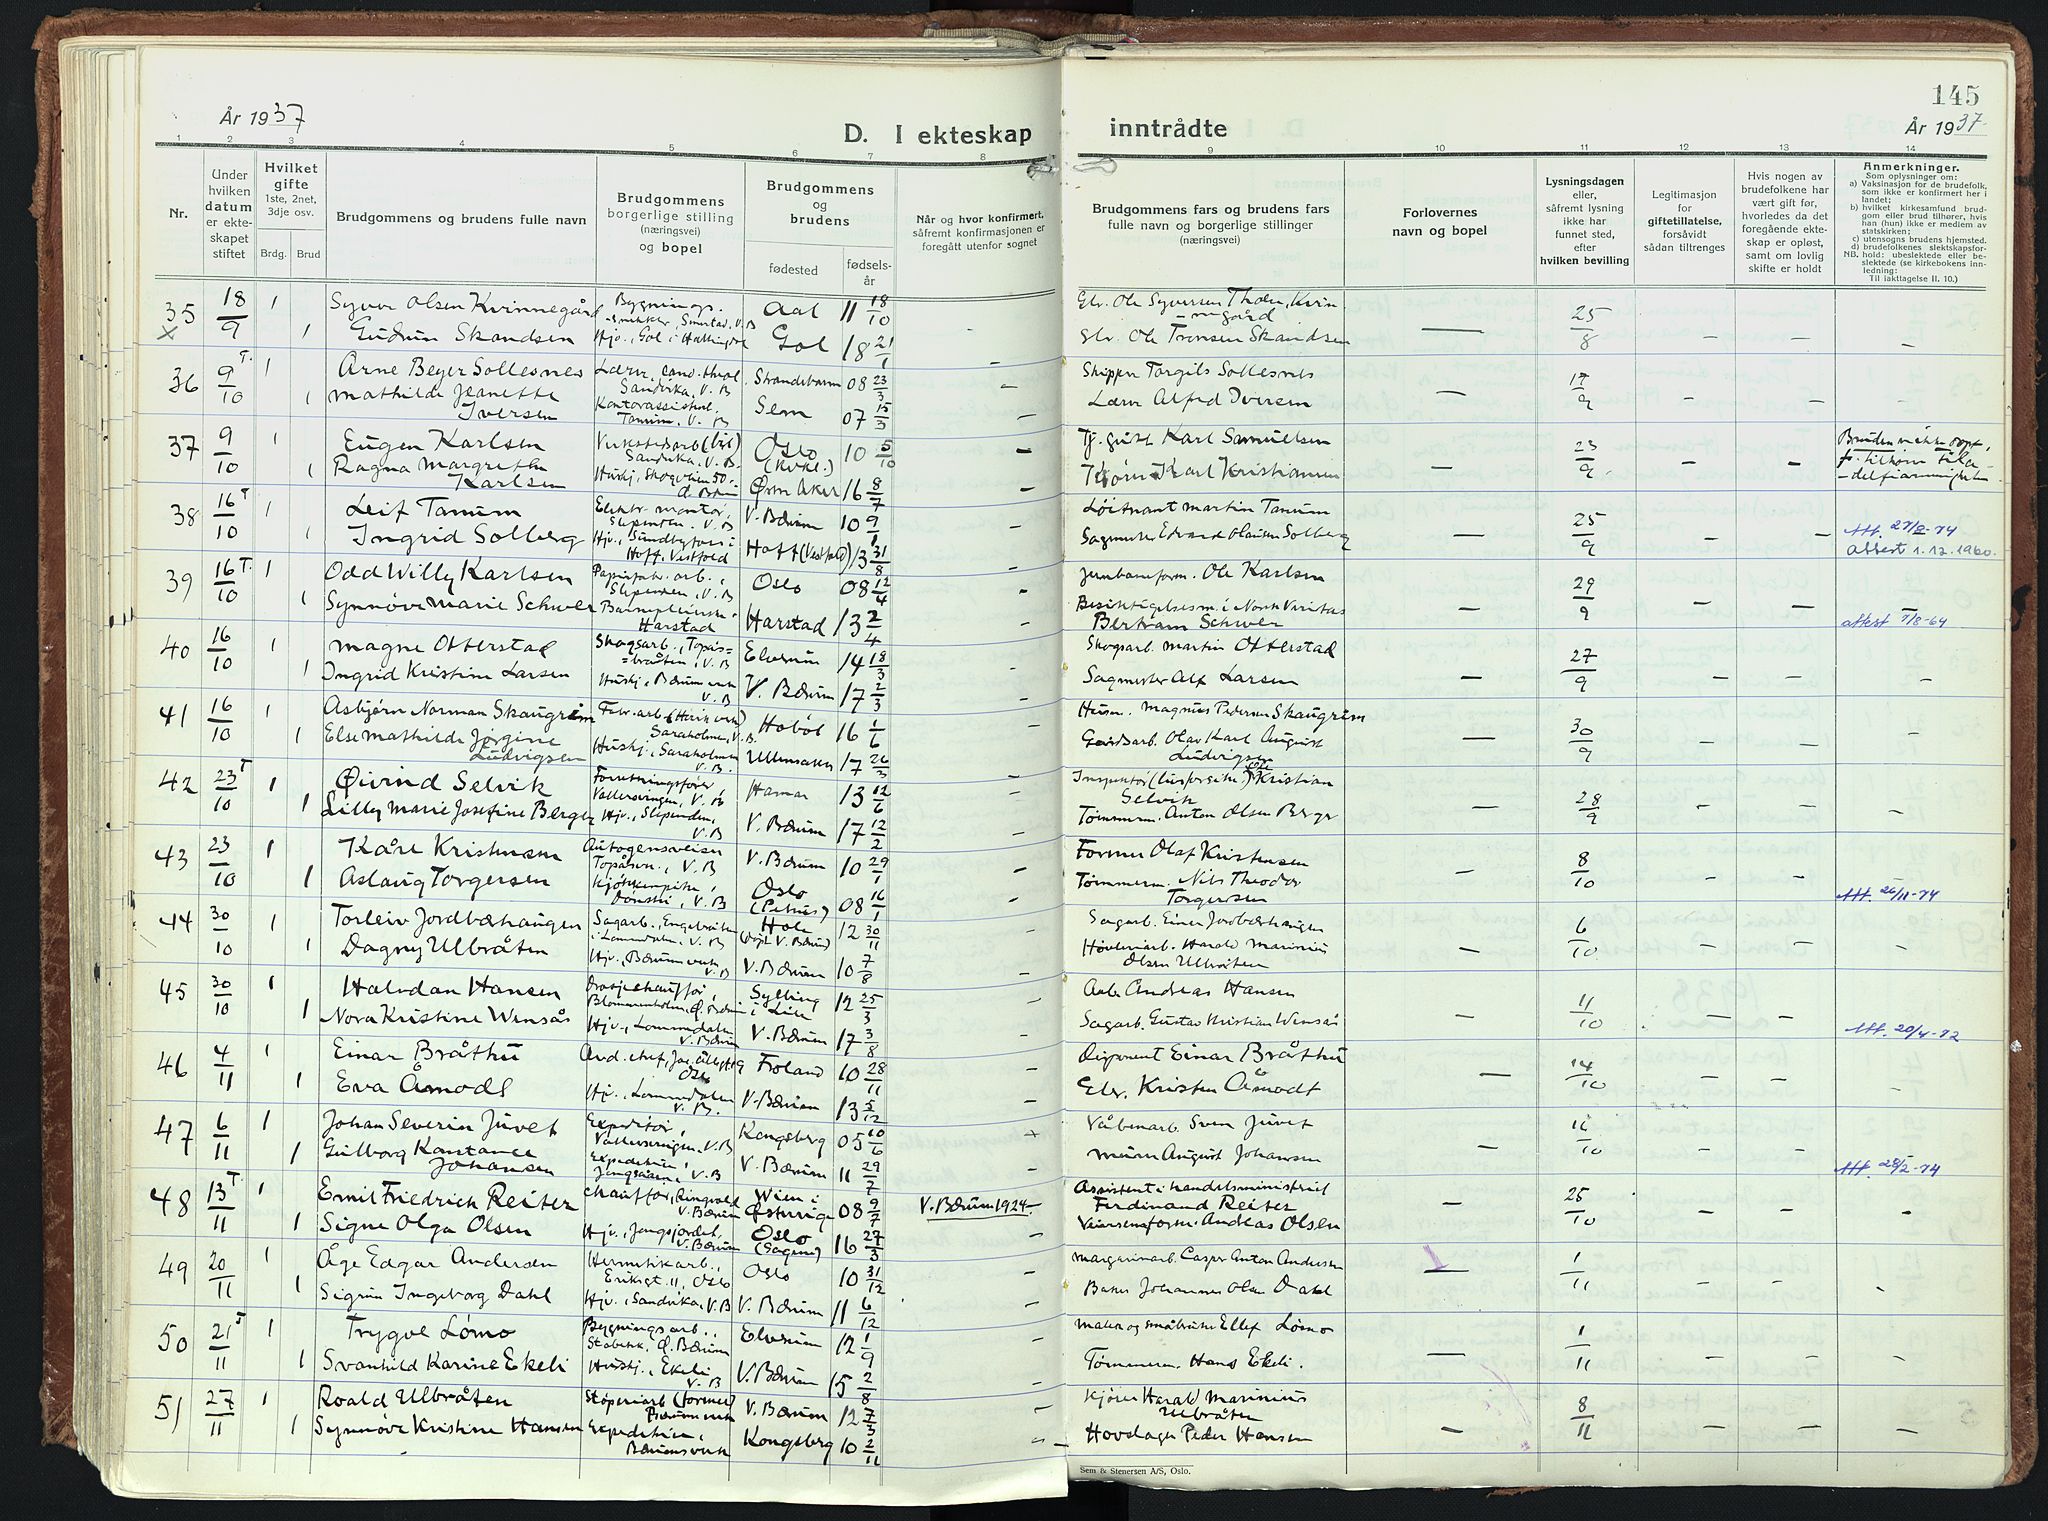 145
År 1937
D. I ekteskap inntrådte
År 1937
1 2 3 4 5 6 7 8 9 10 11 12 13 14
Nr.
Under hvilken datum er ekteskapet stiftet
Hvilket gifte 1ste, 2net, 3dje osv.
Brdg. Brud
Brudgommens og brudens fulle navn
Brudgommens borgerlige stilling (næringsvei) og bopel
Brudgommens og brudens
fødested
fødselsår
Når og hvor konfirmert, såfremt konfirmasjonen er foregått utenfor sognet
Brudgommens fars og brudens fars fulle navn og borgerlige stillinger (næringsvei)
Forlovernes navn og bopel
Lysningsdagen eller, såfremt lysning ikke har funnet sted, efter hvilken bevilling
Legitimasjon for giftetillatelse, forsåvidt sådan tiltrenges
Hvis nogen av brudefolkene har vært gift før, hvorledes da det foregående ekteskap er opløst, samt om lovlig skifte er holdt
Anmerkninger.
Som oplysninger om:
a) Vaksinasjon for de brudefolk, som ikke er konfirmert her i landet;
b) hvilket kirkesamfund brudgom eller brud tilhører, hvis han (hun) ikke er medlem av statskirken;
c) utensogns brudens hjemsted.
d) brudefolkenes slektskapsforhold: ubeslektede eller beslektede (se kirkebokens innledning:
NB. Til iakttagelse II. 10.)
35 18/9 1 Syver Olsen Kvinnegård Aal 11 18/10 25/8
X 1 Gudrun Skandsen Hjv., Gol i Hallingdal Gol 18 21/1 Gbr. Ole Tronsen Skandsen
36 9/10 T. 1 Arne Beyer Sollesnes Sandvika, V. B Strandebarm 08 23/3 Skipper Torgils Sollesnes 17/9
1 Mathilde Jeanette Iversen Tanum, V. B Sem 07 15/3 Lærer Alfred Iversen
37 9/10 1 Eugen Karlsen Sandvika. V. B. Oslo 10 5/10 Karl Samuelsen 23/9
1 Ragna Margrethe Karlsen Ø. Bærum Østre Aker 16 8/7 Karl Kristiansen
38 16/10 T 1 Leif Tanum Elektr. montør, Slependen. V. B V. Bærum 10 9/1 Løitnant Martin Tanum 25/9
1 Ingrid Solberg Hjv., Sundbyfoss i Hoff, Vestfold Hoff (Vestfold) 13 31/8 Sagmester Edvard Olausen Solberg Att. 27/8-74 attest 1.12.1960.
39 16/10 T. 1 Odd Willy Karlsen Papirfabr. arb., Slependen, V. B Oslo 08 12/4 Jernbaneform. Ole Karlsen 29/9
1 Synnøve Marie Schwer Harstad Harstad 13 2/4 Besiktigelsesm. i Norsk Veritas Bertram Schwer attest 7/8-64
40 16/10 1 Magne Otterstad Skogsarb., Topåsbråten, V. B Elverum 14 18/3 Skogsarb. Martin Otterstad 27/9
1 Ingrid Kristine Larsen Hushj., Bærums verk V. B V. Bærum 17 2/3 Sagmester Alf Larsen
41 16/10 1 Asbjørn Norman Skaugrim Saraholmen, V. B. Hobøl 16 1/6 Magnus Pedersen Skaugrim 30/9
1 Else Mathilde Jørgine Ludvigsen Hushj., Saraholmen V. B. Ullensaker 17 26/3 Gårdsarb. Olav Karl August Ludvigsen
42 23/10 T 1 Øivind Selvik Forretningsfører, Vallersvingen, V. B Hamar 13 12/6 Kristian Selvik 28/9
1 Lilly Marie Josefine Berger Hjv., Slependen, V. B V. Bærum 17 12/2 Tømmerm. Anton Olsen Berger
43 23/10 1 Kåre Kristensen Autogensveiser V. B V. Bærum 10 29/1 Former Olaf Kristensen 8/10
1 Aslaug Torgersen V. B Oslo (Petrus) 08 16/1 Tømmerm. Nils Theodor Torgersen Att. 26/11-74
44 30/10 1 Torleiv Jordbærhaugen Sagarb., Engebråten i Lommedalen, V. B Hole (døpt V. Bærum) 12 30/11 Sagarb. Einar Jordbærhaugen 6/10
1 Dagny Ulbråten Hjv., Bærums verk V. B V. Bærum 10 7/8 Høvleriarb. Harald Marinius Olsen Ulbråten
45 30/10 1 Halvdan Hansen Drosjechauffør, Blommenholm, Ø. Bærum Sylling i Lier 12 25/3 Arb. Andreas Hansen 11/10
1 Nora Kristine Wensås Hjv., Lommedalen V. Bærum V. Bærum 17 3/8 Sagarb. Gustav Kristian Wensås Att. 20/4-72
46 4/11 1 Einar Bråthu Oslo Froland 10 28/11 Disponent Einar Bråthu 14/10
1 Eva Åmodt Hjv., Lommedalen V. B. V. Bærum 13 5/12 Gbr. Kristen Åmodt
47 6/11 1 Johan Severin Juvet Expeditør, Vallersvingen, V. B Kongsberg 05 10/6 Våbenarb. Sven Juvet 10
1 Gulborg Konstance Johansen Expeditrise, V. B V. Bærum 11 29/7 Murer August Johansen Att. 28/2-74
48 13/11 T. 1 Emil Friedrich Reiter Chauffør, Ringvold V. Bærum Wien i Østerrige 08 9/7 V. Bærum 1924. Assistent i handelsministeriet Ferdinand Reiter 25/10
1 Signe Olga Olsen Hjv., Jongsjordet, V. Bærum Oslo (Sagene) 16 27/3 Veivesensform. Andreas Olsen
49 20/11 1 Åge Edgar Andersen Hermetikkarb., Eriksgt. 11, Oslo Oslo 10 31/12 Margarinarb. Casper Anton Andersen 1/11
1 Sigrun Ingeborg Dahl Hjv., Sandvika, V. B V. Bærum 11 6/12 Baker Johannes Olsen Dahl
50 21/11 T 1 Trygve Lømo Bygningsarb., Stabekk, Ø. Bærum Elverum 12 1/9 Maler og småbruker Ellef Lømo 1/11
1 Svanhild Karine Ekeli Hushj., Ekeli V. B V. Bærum 15 2/8 Tømmerm. Hans Ekeli.
51 27/11 1 Roald Ulbråten Støperiarb (former) Bærums verk V. Bærum 12 7/3 Kjører Harald Marinius Ulbråten 8/11
1 Synnøve Kristine Hansen Expeditrise, Bærums verk Kongsberg 10 2/11 Hovslager Peder Hansen
Sem & Stenersen A/S, Oslo.